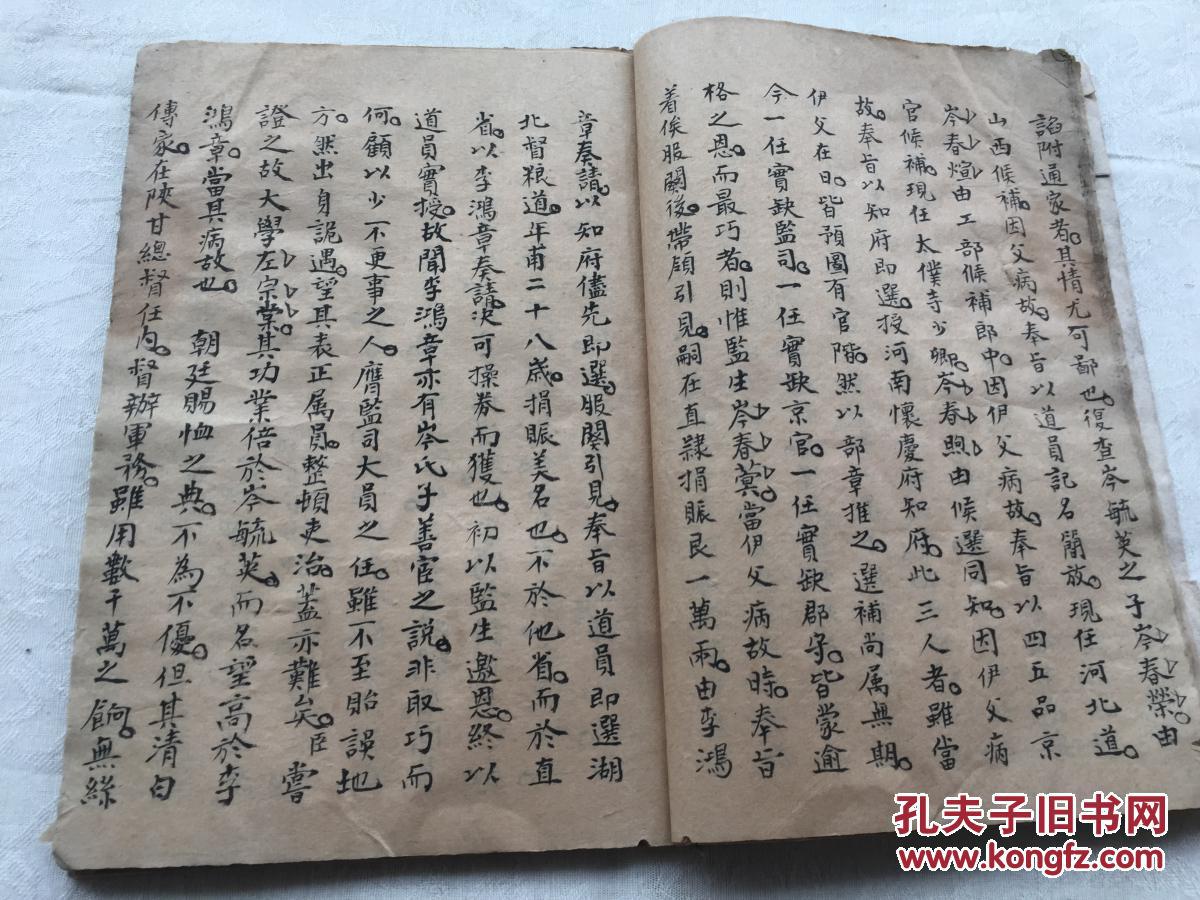 諂附通家者其情尤可鄙也復查岑毓英之子岑春榮由
山西候補因父病故奉旨以道員記名簡放現任河北道
岑春煊由工部候補郎中因伊父病故奉旨以四五品京
官候補現任太僕寺少卿岑春照由候選同知因伊父病
故奉旨以知府即選授河南懷慶府知府此三人者雖當
伊父在日皆預圖有官階然以部章推之選補尚属無期
今一任實缺監司一任實缺京官一任實缺郡守皆蒙逾
格之恩而最巧者則惟監生岑春蓂當伊父病故時奉旨
着俟服闋後帶領引見嗣在直隸捐賑艮一萬兩由李鴻
章奏請以知府儘先即選服闋引見奉旨以道員即選湖
北督粮道年甫二十八歲捐賑美名也不於他省而於直
省以李鴻章奏請决可操券而獲也初以監生邀恩終以
道員實授故聞李鴻章亦有岑氏子善宦之説非取巧而
何顧以少不更事之人膺監司大員之任雖不至貽誤地
方然出身詭遇望其表正属員整頓吏治蓋亦難矣臣嘗
證之故大學左宗棠其功業倍於岑毓英而名望高於李
鴻章當其病故也 朝廷賜恤之典不為不優但其清白
傳家在陝甘總督任内督辦軍務雖用數千萬之餉無絲
孔夫子旧书网
www.kongfz.com